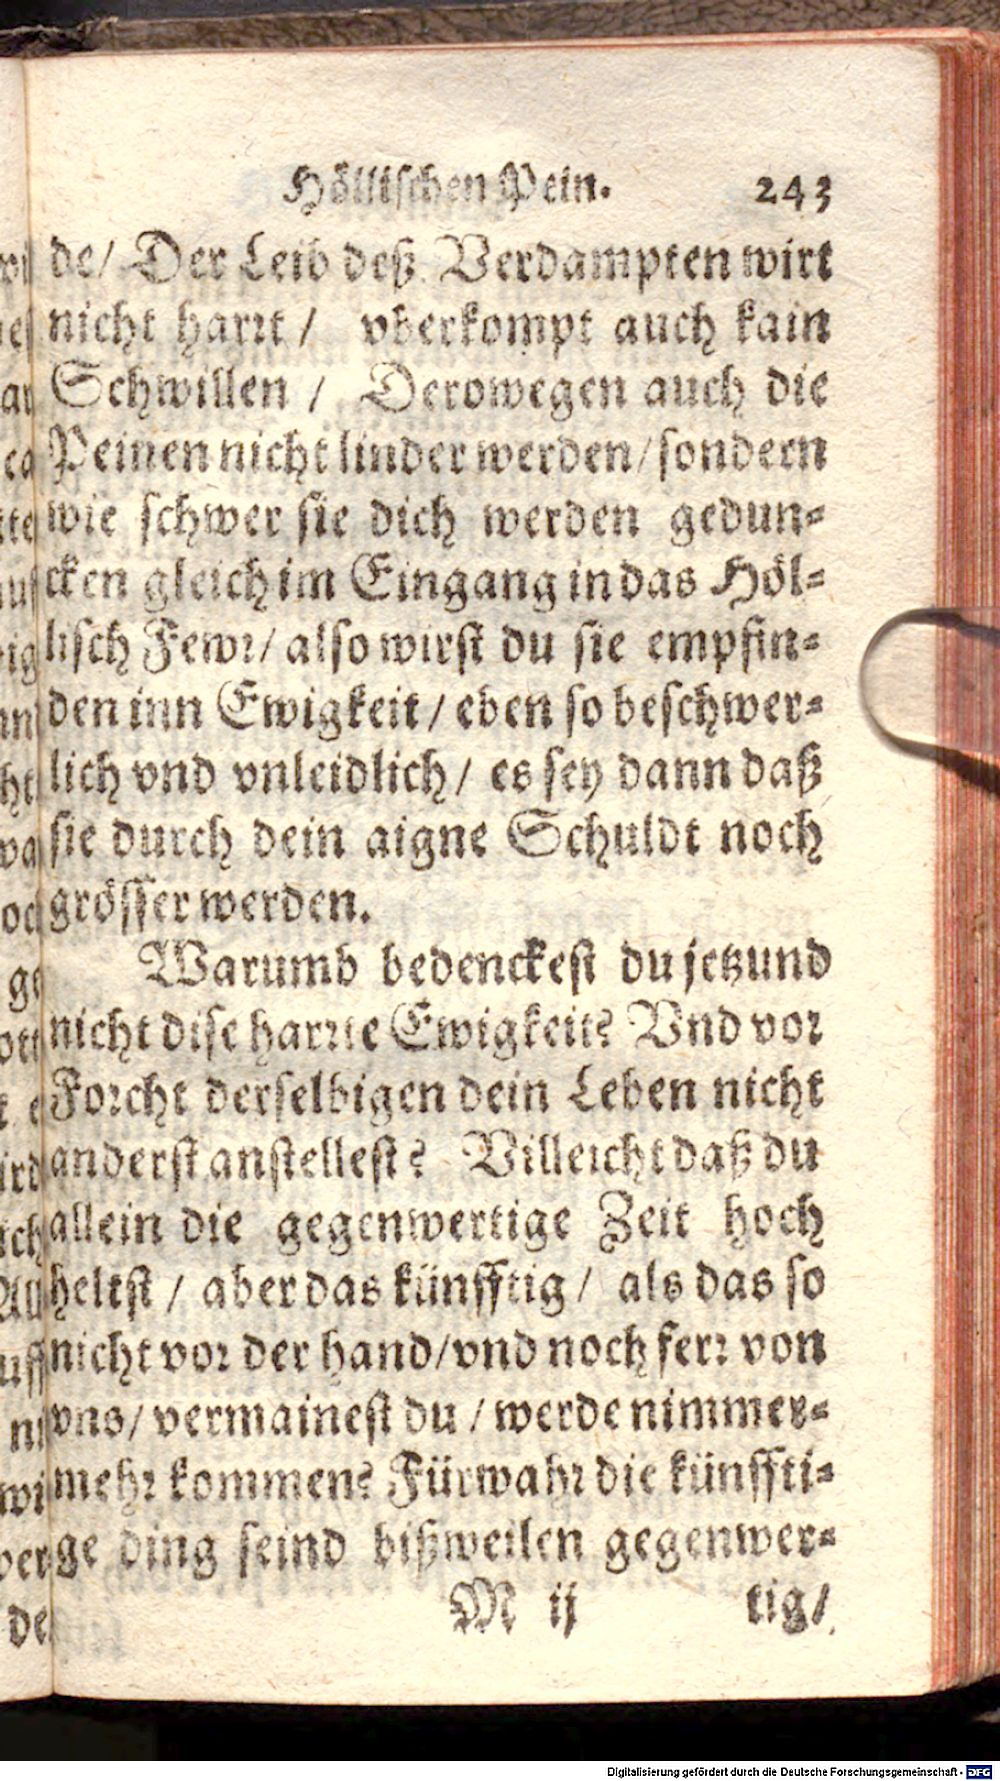 Höllischen Pein. 243
de/ Der Leib deß Verdampten wirt
nicht harrt / vberkompt auch kain
Schwillen / Derowegen auch die
Peinen nicht linder werden/sondern
wie schwer sie dich werden gedun-
cken gleich im Eingang in das Höl-
lisch Fewr/ also wirst du sie empfin-
den inn Ewigkeit / eben so beschwer-
lich vnd vnleidlich / es sey dann daß
sie durch dein aigne Schuldt noch
grösser werden.
Warumb bedenckest du jetzund
nicht dise harrte Ewigkeit? Vnd vor
Forcht derselbigen dein Leben nicht
anderst anstellest? Villeicht daß du
allein die gegenwertige Zeit hoch
heltst / aber das künfftig / als das so
nicht vor der hand/vnd noch ferr von
vns/ vermainest du / werde nimmer-
mehr kommen? Fürwahr die künffti-
ge ding seind bißweilen gegenwer-
M ij tig/
Digitalisierung gefördert durch die Deutsche Forschungsgemeinschaft - DFG